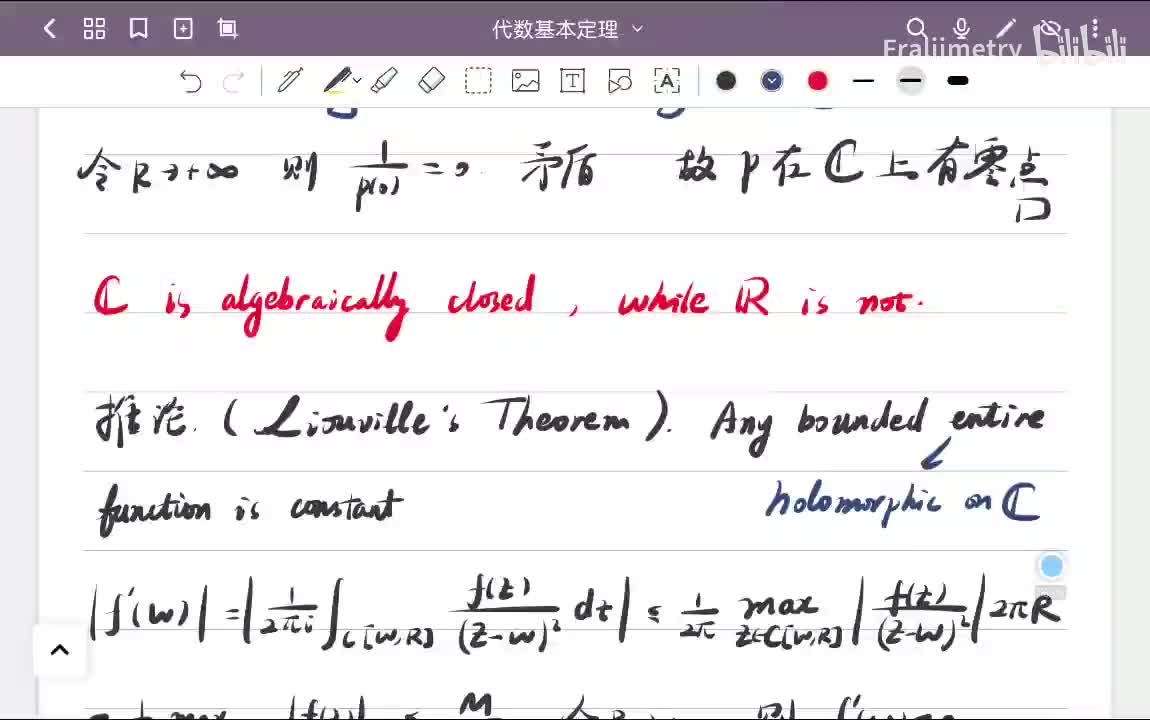 代数基本定理
Fraliimetry bilibili
令 R→+∞ 则 1/p(0) = 0. 矛盾 故 p 在 ℂ 上有零点 □
ℂ is algebraically closed, while ℝ is not.
推论. (Liouville's Theorem). Any bounded entire
function is constant
holomorphic on ℂ
|f'(w)| = |1/2πi ∫_{C[w,R]} f(z)/(z-w)² dz| ≤ 1/2π max_{z∈C[w,R]} |f(z)/(z-w)²| 2πR
max |f(z)| ≤ M 令 则 f'(w)